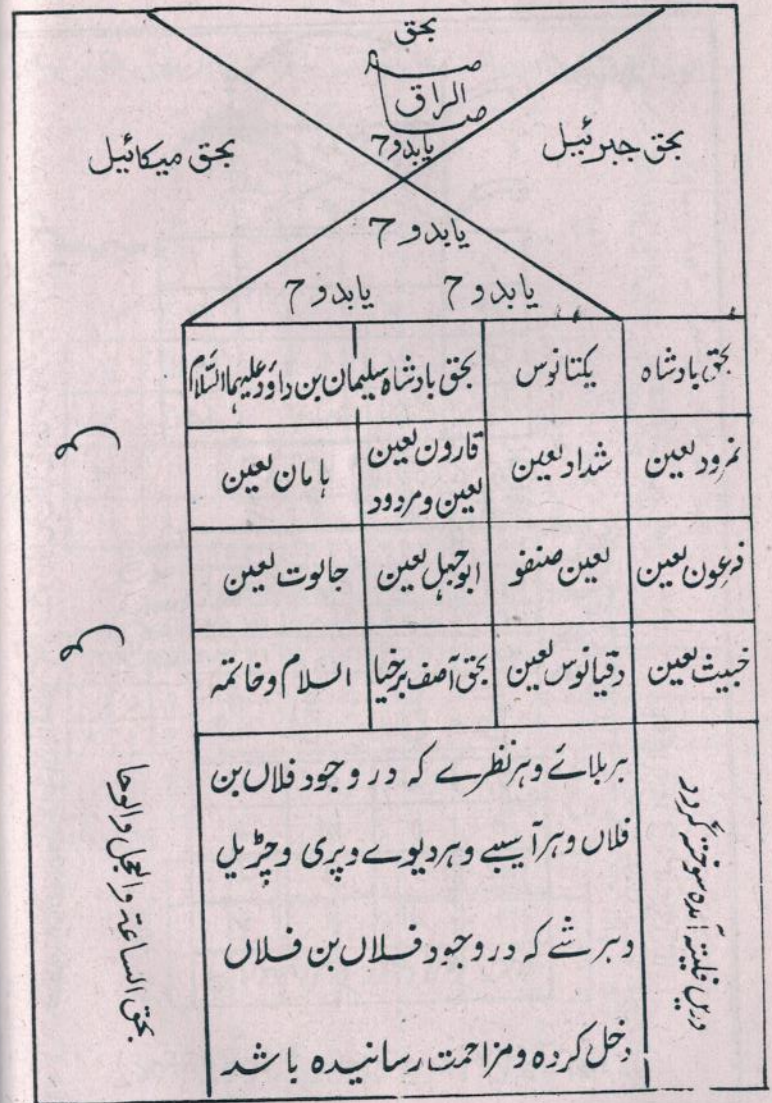 بحق
الراق
یابدو 7
بحق جبرئیل
بحق میکائیل
یابدو 7
یابدو 7 یابدو 7
بحق بادشاہ یکتانوس بحق بادشاہ سلیمان بن داؤد علیہما السّلام
نمرود لعین شداد لعین قارون لعین لعین و مردود ہامان لعین
فرعون لعین لعین صنفو ابوجہل لعین جالوت لعین
خبیث لعین دقیانوس لعین بحق آصف برخیا السلام و خاتمہ
ہر بلائے و ہر نظرے کہ در وجود فلاں بن
فلاں و ہر آسیبے و ہر دیوے و پری و چڑیل
و ہر شے کہ در وجود فلاں بن فلاں
دخل کردہ و مزاحمت رسانیدہ باشد
دریں فلیتہ آمدہ سوختہ گردد
بحق الساعۃ والعجل والوحا